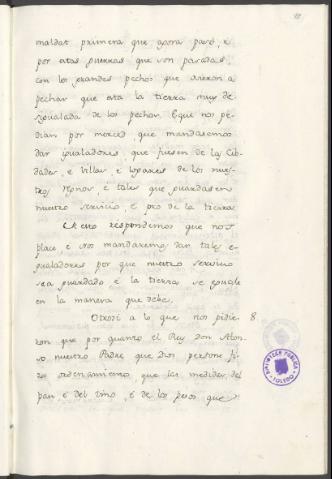 maldat primera que agora pasó, e
por otas guerras que son pasadas,
con los grandes pechos que ovieron a
pechar que esta la tierra muy de-
sigualada de los pechos. Eque nos pe-
dian por merced que mandasemos
dar igualadores que fuesen de las Cib-
dades, e Villas e Logares de los nues-
tros Regnos e tales que guardasen
nuestro servicio, e pro de la tierra
A esto respondemos que nos
place e Nos mandaremos dar tales e-
gualadores por que nuestro servicio
sea guardado e la tierra se eguale
en la manera que debe.
Otrosi a lo que nos pidie- 8.
ron que por quanto el Rey Don Alon-
so nuestro Padre que Dios perdone fi-
zo ordenamiento que las medidas del
pan e del vino e de los pesos que
BIBLIOTECA PUBLICA
TOLEDO